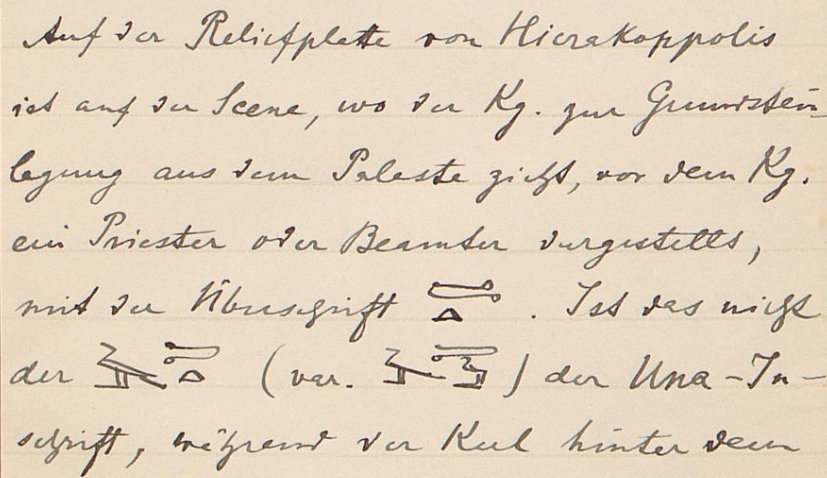 Auf der Reliefplatte von Hierakoppolis
ist auf der Scene, wo der Kg. zur Grundstein-
legung aus dem Palaste zieht, vor dem Kg.
ein Priester oder Beamter dargestellt,
mit der Überschrift . Ist das nicht
der (var. ) der Una-In-
schrift, während der Kerl hinter dem